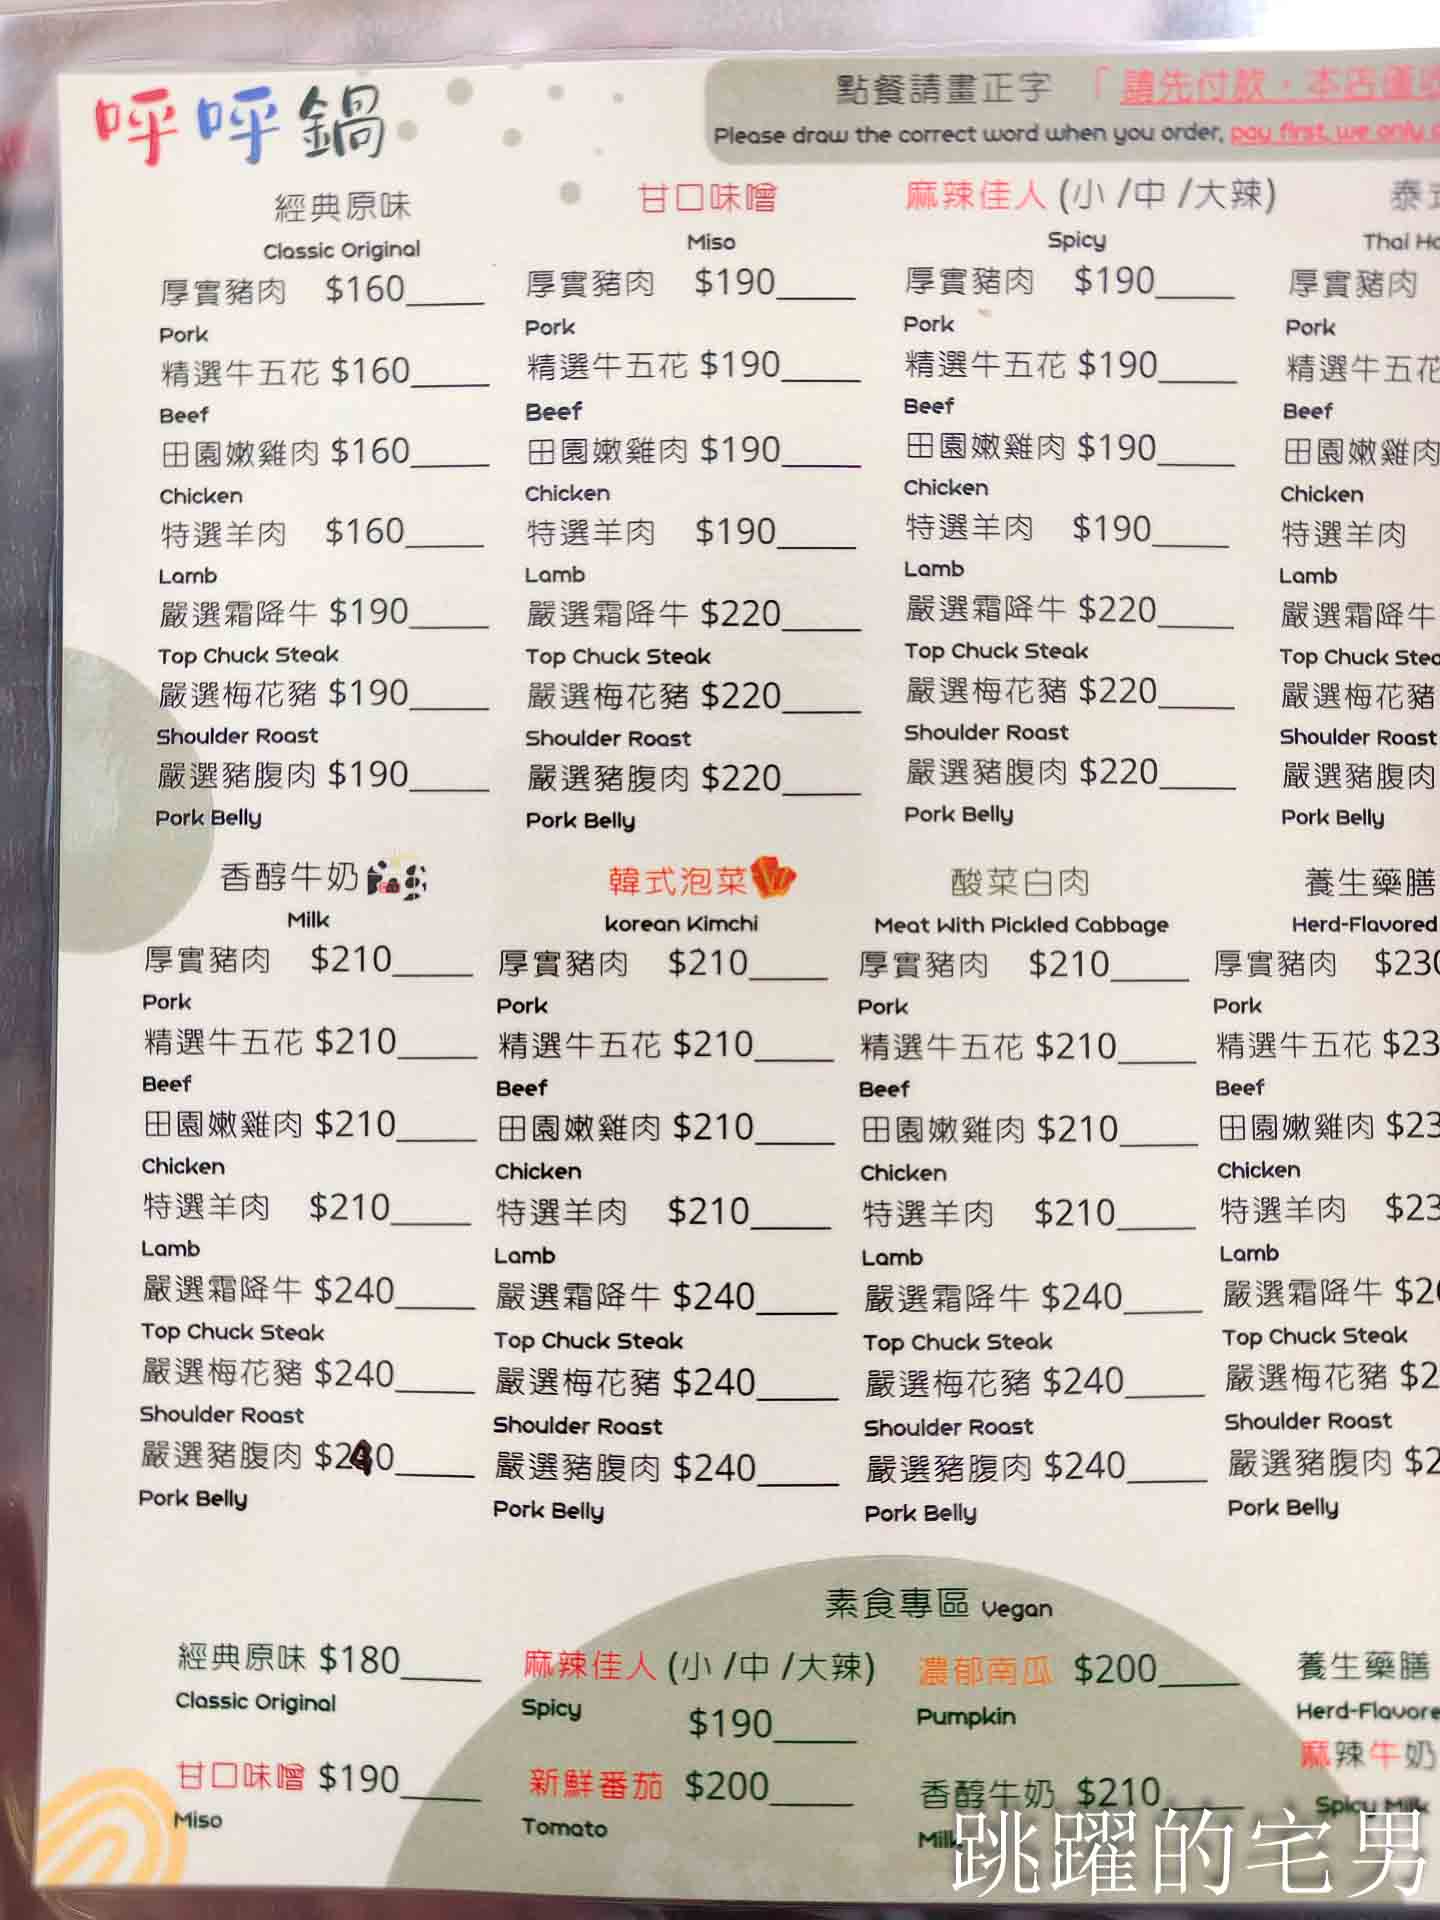 呼呼鍋
點餐請畫正字 「請先付款,本店僅收
Please draw the correct word when you order, pay first, we only
經典原味
Classic Original
厚實豬肉 $160____
Pork
精選牛五花 $160____
Beef
田園嫩雞肉 $160____
Chicken
特選羊肉 $160____
Lamb
嚴選霜降牛 $190____
Top Chuck Steak
嚴選梅花豬 $190____
Shoulder Roast
嚴選豬腹肉 $190____
Pork Belly
甘口味噌
Miso
厚實豬肉 $190____
Pork
精選牛五花 $190____
Beef
田園嫩雞肉 $190____
Chicken
特選羊肉 $190____
Lamb
嚴選霜降牛 $220____
Top Chuck Steak
嚴選梅花豬 $220____
Shoulder Roast
嚴選豬腹肉 $220____
Pork Belly
麻辣佳人 (小 /中 /大辣)
Spicy
厚實豬肉 $190____
Pork
精選牛五花 $190____
Beef
田園嫩雞肉 $190____
Chicken
特選羊肉 $190____
Lamb
嚴選霜降牛 $220____
Top Chuck Steak
嚴選梅花豬 $220____
Shoulder Roast
嚴選豬腹肉 $220____
Pork Belly
泰
Thai
厚實豬肉
Pork
精選牛五花
Beef
田園嫩雞肉
Chicken
特選羊肉
Lamb
嚴選霜降牛
Top Chuck
嚴選梅花豬
Shoulder Roast
嚴選豬腹肉
Pork Belly
香醇牛奶
Milk
厚實豬肉 $210____
Pork
精選牛五花 $210____
Beef
田園嫩雞肉 $210____
Chicken
特選羊肉 $210____
Lamb
嚴選霜降牛 $240____
Top Chuck Steak
嚴選梅花豬 $240____
Shoulder Roast
嚴選豬腹肉 $240____
Pork Belly
韓式泡菜
korean Kimchi
厚實豬肉 $210____
Pork
精選牛五花 $210____
Beef
田園嫩雞肉 $210____
Chicken
特選羊肉 $210____
Lamb
嚴選霜降牛 $240____
Top Chuck Steak
嚴選梅花豬 $240____
Shoulder Roast
嚴選豬腹肉 $240____
Pork Belly
酸菜白肉
Meat With Pickled Cabbage
厚實豬肉 $210____
Pork
精選牛五花 $210____
Beef
田園嫩雞肉 $210____
Chicken
特選羊肉 $210____
Lamb
嚴選霜降牛 $240____
Top Chuck Steak
嚴選梅花豬 $240____
Shoulder Roast
嚴選豬腹肉 $240____
Pork Belly
養生藥膳
Herd-Flavored
厚實豬肉 $230
Pork
精選牛五花 $23
Beef
田園嫩雞肉 $23
Chicken
特選羊肉 $23
Lamb
嚴選霜降牛 $2
Top Chuck Steak
嚴選梅花豬 $2
Shoulder Roast
嚴選豬腹肉 $2
Pork Belly
素食專區 Vegan
經典原味 $180____
Classic Original
甘口味噌 $190____
Miso
麻辣佳人 (小 /中 /大辣)
Spicy $190____
新鮮番茄 $200____
Tomato
濃郁南瓜 $200____
Pumpkin
香醇牛奶 $210____
Milk
養生藥膳
Herd-Flavore
麻辣牛奶
Spicy Milk
跳躍的宅男